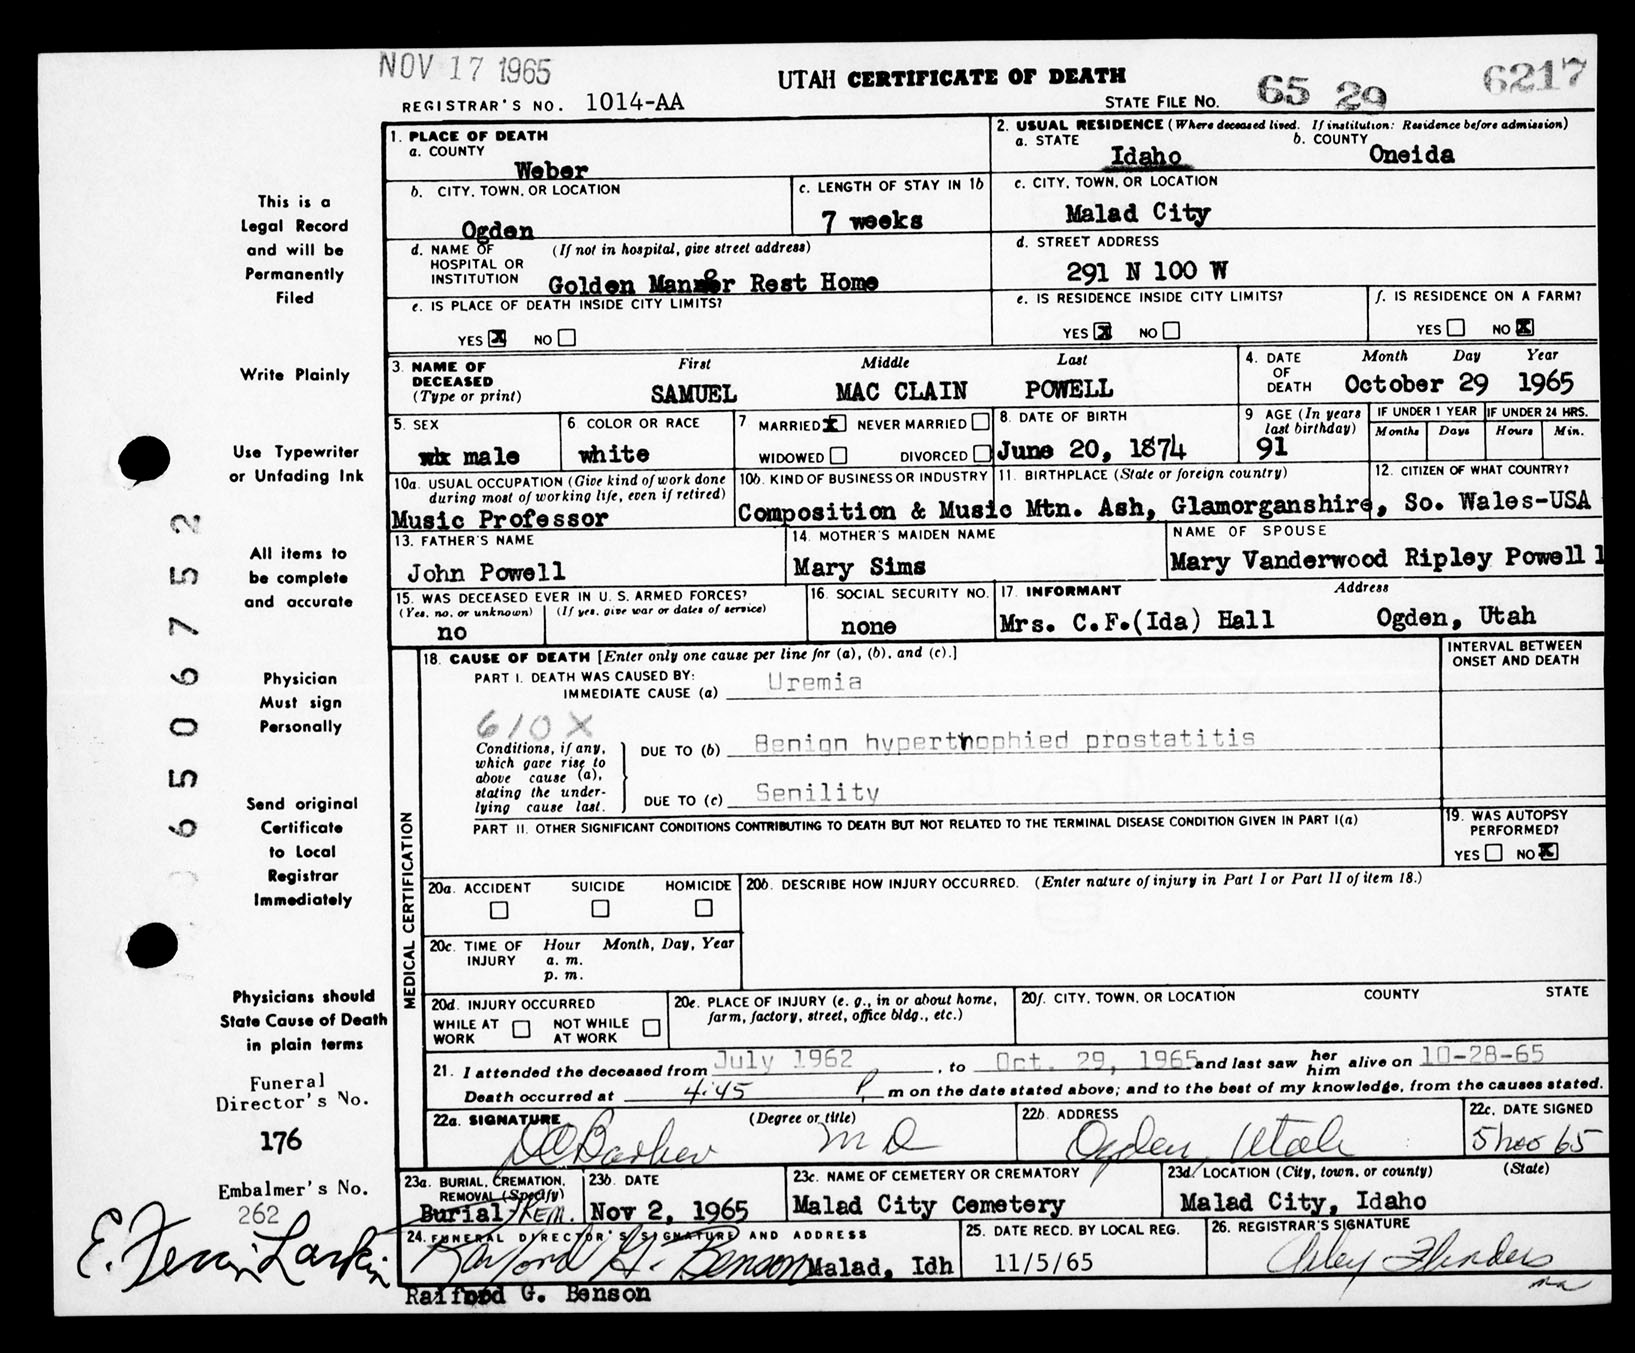 NOV 17 1965
UTAH CERTIFICATE OF DEATH
REGISTRAR'S NO. 1014-AA
STATE FILE NO. 65 29 6217
This is a
Legal Record
and will be
Permanently
Filed
Write Plainly
Use Typewriter
or Unfading Ink
All items to
be complete
and accurate
Physician
Must sign
Personally
Send original
Certificate
to Local
Registrar
Immediately
Physicians should
State Cause of Death
in plain terms
Funeral
Director's No.
176
Embalmer's No.
262
E. Ferrin Larkin
6506752
1. PLACE OF DEATH
a. COUNTY
Weber
2. USUAL RESIDENCE (Where deceased lived. If institution: Residence before admission)
a. STATE
Idaho
b. COUNTY
Oneida
b. CITY, TOWN, OR LOCATION
Ogden
c. LENGTH OF STAY IN 1b
7 weeks
c. CITY, TOWN, OR LOCATION
Malad City
d. NAME OF HOSPITAL OR INSTITUTION (If not in hospital, give street address)
Golden Manner Rest Home
d. STREET ADDRESS
291 N 100 W
e. IS PLACE OF DEATH INSIDE CITY LIMITS?
YES X NO
e. IS RESIDENCE INSIDE CITY LIMITS?
YES X NO
f. IS RESIDENCE ON A FARM?
YES NO X
3. NAME OF DECEASED (Type or print)
First Middle Last
SAMUEL MAC CLAIN POWELL
4. DATE OF DEATH
Month Day Year
October 29 1965
5. SEX
male
6. COLOR OR RACE
white
7 MARRIED X NEVER MARRIED
WIDOWED DIVORCED
8. DATE OF BIRTH
June 20, 1874
9 AGE (In years last birthday)
91
IF UNDER 1 YEAR
Months Days
IF UNDER 24 HRS.
Hours Min.
10a. USUAL OCCUPATION (Give kind of work done during most of working life, even if retired)
Music Professor
10b. KIND OF BUSINESS OR INDUSTRY
Composition & Music
11. BIRTHPLACE (State or foreign country)
Mtn. Ash, Glamorganshire, So. Wales-USA
12. CITIZEN OF WHAT COUNTRY?
13. FATHER'S NAME
John Powell
14. MOTHER'S MAIDEN NAME
Mary Sims
NAME OF SPOUSE
Mary Vanderwood Ripley Powell l
15. WAS DECEASED EVER IN U. S. ARMED FORCES?
(Yes, no, or unknown) (If yes, give war or dates of service)
no
16. SOCIAL SECURITY NO.
none
17. INFORMANT Address
Mrs. C.F.(Ida) Hall Ogden, Utah
18. CAUSE OF DEATH [Enter only one cause per line for (a), (b), and (c).]
INTERVAL BETWEEN ONSET AND DEATH
PART I. DEATH WAS CAUSED BY:
IMMEDIATE CAUSE (a) Uremia
610X
Conditions, if any, which gave rise to above cause (a), stating the underlying cause last.
DUE TO (b) Benign hyperthophied prostatitis
DUE TO (c) Senility
PART II. OTHER SIGNIFICANT CONDITIONS CONTRIBUTING TO DEATH BUT NOT RELATED TO THE TERMINAL DISEASE CONDITION GIVEN IN PART I(a)
19. WAS AUTOPSY PERFORMED?
YES NO X
MEDICAL CERTIFICATION
20a. ACCIDENT SUICIDE HOMICIDE
20b. DESCRIBE HOW INJURY OCCURRED. (Enter nature of injury in Part I or Part II of item 18.)
20c. TIME OF INJURY Hour Month, Day, Year
a. m.
p. m.
20d. INJURY OCCURRED
WHILE AT WORK NOT WHILE AT WORK
20e. PLACE OF INJURY (e. g., in or about home, farm, factory, street, office bldg., etc.)
20f. CITY, TOWN, OR LOCATION COUNTY STATE
21. I attended the deceased from July 1962, to Oct. 29, 1965 and last saw her him alive on 10-28-65
Death occurred at 4:45 P, m on the date stated above; and to the best of my knowledge, from the causes stated.
22a. SIGNATURE (Degree or title)
Barker MD
22b. ADDRESS
Ogden, Utah
22c. DATE SIGNED
5 Nov 65
23a. BURIAL, CREMATION, REMOVAL (Specify)
Burial-Rem.
23b. DATE
Nov 2, 1965
23c. NAME OF CEMETERY OR CREMATORY
Malad City Cemetery
23d. LOCATION (City, town, or county) (State)
Malad City, Idaho
24. FUNERAL DIRECTOR'S SIGNATURE AND ADDRESS
Raiford G. Benson Malad, Idh
Raiford G. Benson
25. DATE RECD. BY LOCAL REG.
11/5/65
26. REGISTRAR'S SIGNATURE
Flinders